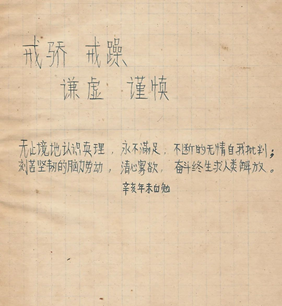 戒骄 戒躁
谦虚 谨慎
无止境地认识真理，永不满足，不断的无情自我批判；
刻苦坚韧的脑力劳动，清心寡欲，奋斗终生求人类解放。
辛亥年末自勉